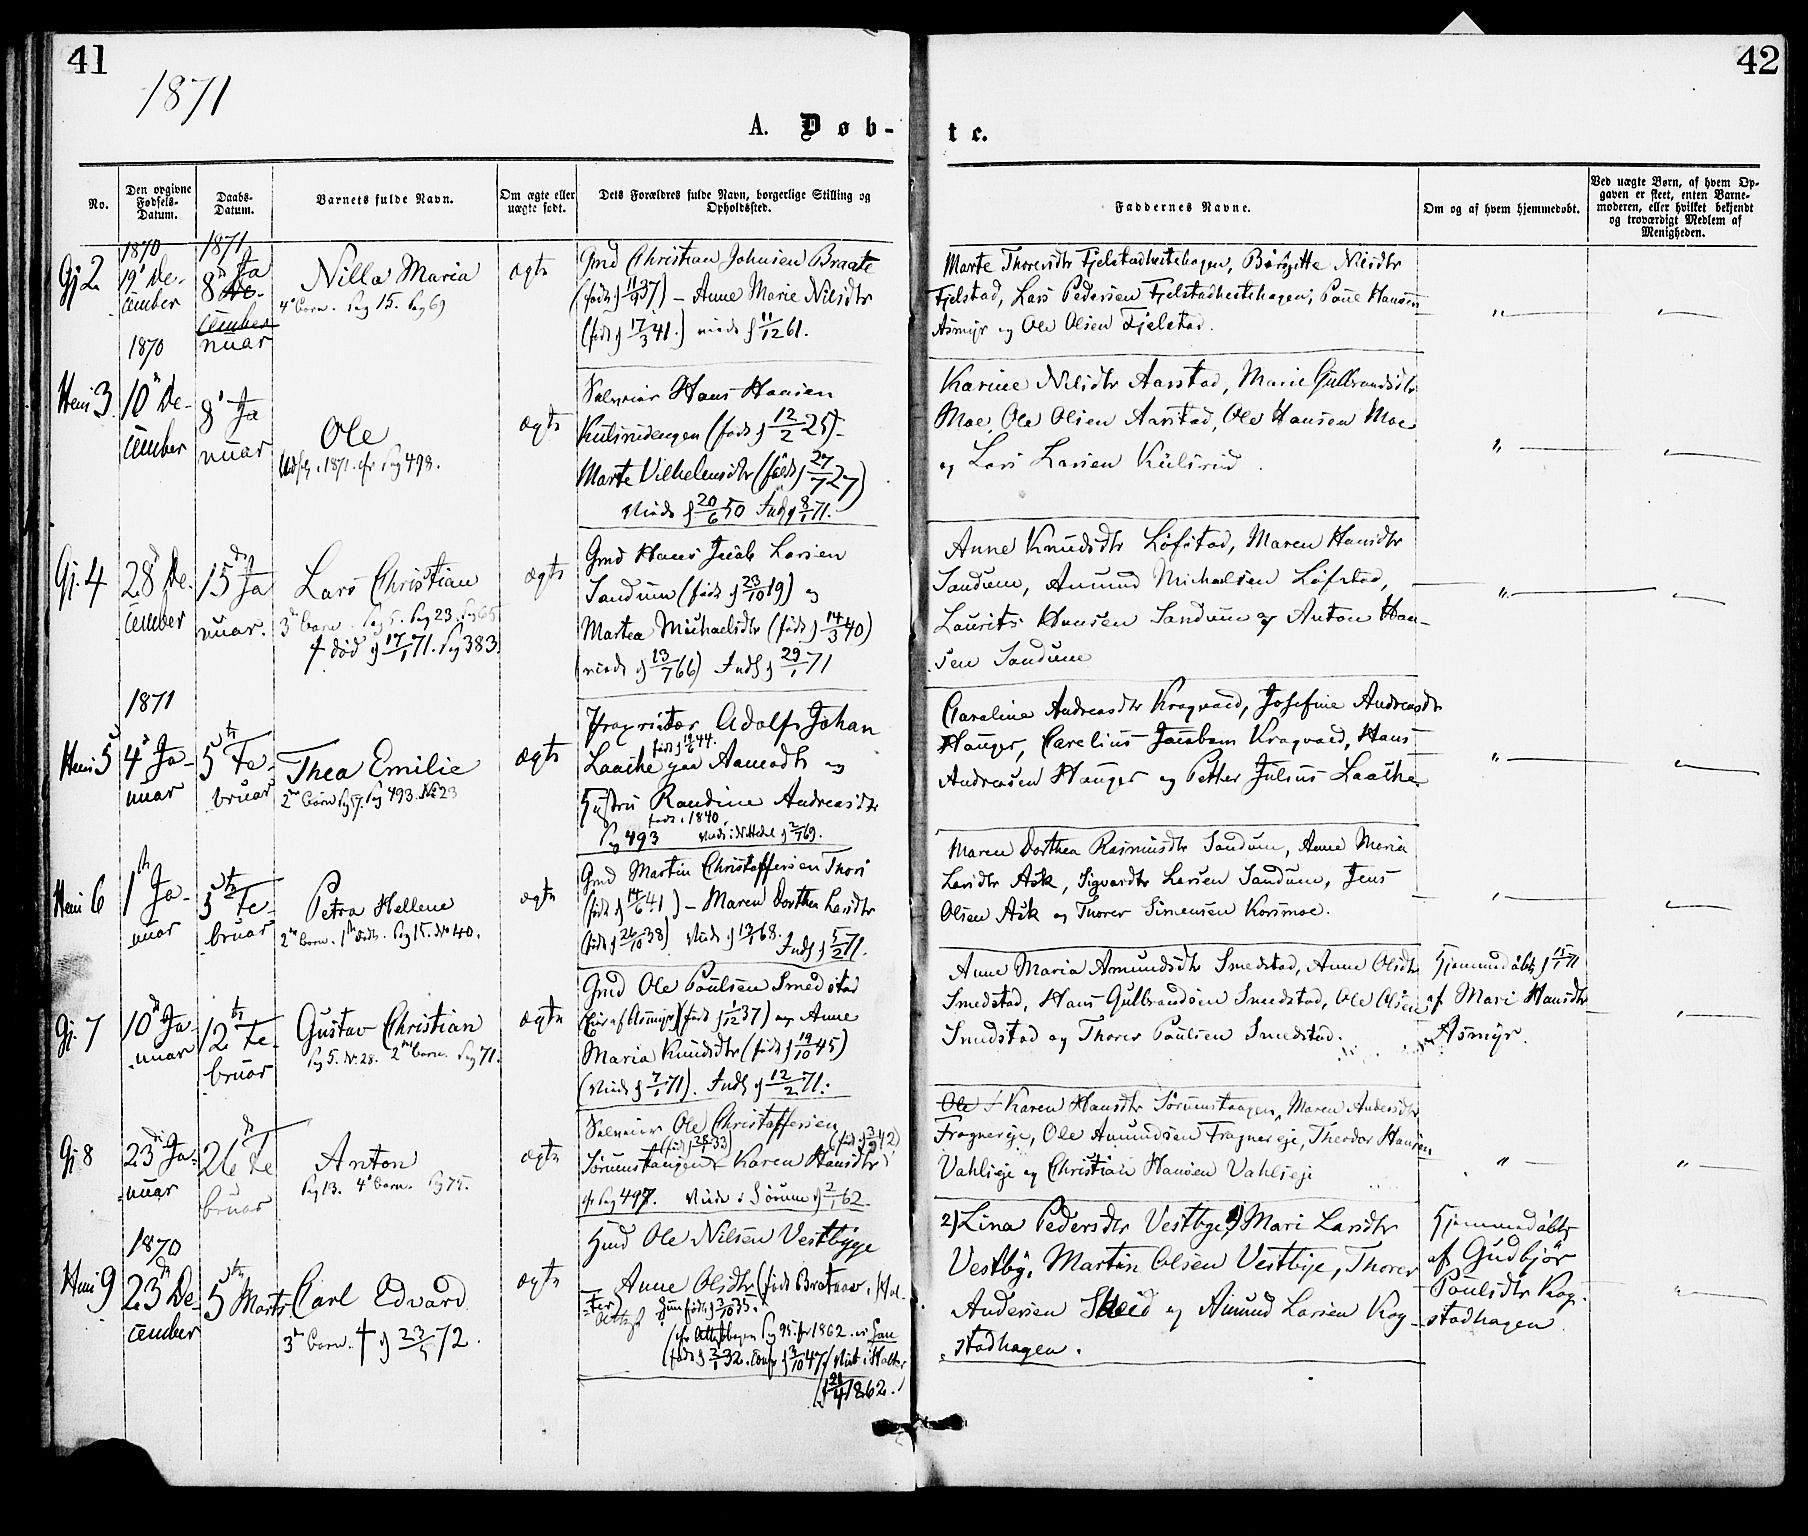 41
42
1871
A. Døb-
te.
No.
Den opgivne Fødsels-Datum.
Daabs-Datum.
Barnets fulde Navn.
Om ægte eller uægte født.
Dets Forældres fulde Navn, borgerlige Stilling og Opholdssted.
Faddernes Navne.
Om og af hvem hjemmedøbt.
Ved uægte Børn, af hvem Opgaven er skeet, enten Barnemoderen, eller hvilket bekjendt og troværdigt Medlem af Menigheden.
Gj 2
1870
19 De-
cember
1871
8 Ja
De-
cember
nuar
Nilla Maria
4 Barn. Pag 15. Pag 69
ægte
Gmd Christian Johnsen Braate
(født 11/9 37) – Anne Marie Nilsdtr
(født 17/3 41.) viede 11/12 61.
Marte Thorersdtr Fjelstadhestehagen, Birgitte Nilsdtr
Fjelstad, Lars Pedersen Fjelstadhestehagen, Poul Hansen
Asmyr og Ole Olsen Fjelstad.
Hem 3
1870
10 De-
cember
8 Ja
nuar
Ole
1871. cfr Pag 498.
ægte
Selveier Hans Hansen
Kulsrudengen (født 12/2 25) –
Marte Vilhelmsdtr (født 27/7 27)
viede 20/6 50 Inds 8/1 71.
Karine Nilsdtr Aarstad, Marie Gulbrandsdtr
Moe, Ole Olsen Aarstad, Ole Hansen Moe
og Lars Larsen Kulsrud.
Gj. 4
28 De-
cember
15 Ja
nuar.
Lars Christian
3 Barn. Pag 5. Pag 23. Pag 65
† død 17/1 71. Pag 383.
ægte
Gmd Hans Jacob Larsen
Sandum (født 23/10 19) og
Martea Michaelsdtr (født 14/3 40)
(viede 13/7 66) Inds 29/1 71
Anne Knudsdtr Løfstad, Maren Hansdtr
Sandum, Amund Michaelsen Løfstad,
Laurits Hansen Sandum og Anton Han-
sen Sandum
Hem 5
1871
4 Ja-
nuar
5 Fe-
bruar
Thea Emilie
2 Barn Pag 17. Pag 493. No 23
ægte
Proprietær Adolf Johan
Laache paa Aamodt og
Hustru Randine Andreasdtr
født 1840.
Pag 493
Caroline Andreasdtr Kragvaed, Josefine Andreasdtr
Hauger, Carelius Jacobsen Kragvaed, Hans
Andreasen Hauger og Petter Julius Laache
Hem 6
1 Ja-
nuar
5 Fe-
bruar
Petra Hellene
2 Barn. 1 Pag 15. No 40.
ægte
Gmd Martin Christoffersen Thori
(født 14/6 41) – Maren Dorthea Larsdtr
(født 26/10 38) viede 13/1 68. Inds 5/2 71.
Maren Dorthea Rasmusdtr Sandum, Anne Maria
Larsdtr Ask, Sigvardtr Larsen Sandum, Jens
Olsen Ask og Thorer Simensen Korsmoe.
Gj. 7
10 Ja-
nuar
12 Fe-
bruar
Gustav Christian
Pag 5. No 28. 2 Barn. Pag 71.
ægte
Gmd Ole Poulsen Smedstad
(født 1/12 37) og Anne
Maria Knudsdtr (født 19/10 45)
(viede 7/1 71). Inds 12/2 71.
Anne Maria Amundsdtr Smedstad, Anne Olsdtr
Smedstad, Hans Gulbrandsen Smedstad, Ole Olsen
Smedstad og Thorer Poulsen Smedstad.
Hjemmedøbt 15/1 71
af Mari Hansdtr
Asmyr.
Gj 8
23 Ja-
nuar
26 Fe
bruar
Anton
Pag 13. 4 Barn. Pag 75.
ægte
Selveier Ole Christoffersen
Sørumstangen – Karen Hansdtr
cfr Pag 497. viede i Sørum 2/1 62.
Ole Karen Hansdtr Sørumstangen, Maren Andersdtr
Fragnereje, Ole Amundsen Fragnereje, Theodor Hansen
Vahlseje og Christian Hansen Vahlseje
Hem 9
1870
23 De-
cember
5 Marts
Carl Edvard
3 Barn. † 23/5 72.
ægte
Hmd Ole Nilsen Vestbye
Anne Olsdtr (født Brataas i Hol-
ter
1862.
2) Lina Pedersdtr Vestbye 1) Mari Larsdtr
Vestby, Martin Olsen Vestbye, Thorer
Andersen Skeid og Amund Larsen Kog-
stadhagen.
Hjemmedøbt
af Gudbjør
Poulsdtr Kog-
stadhagen